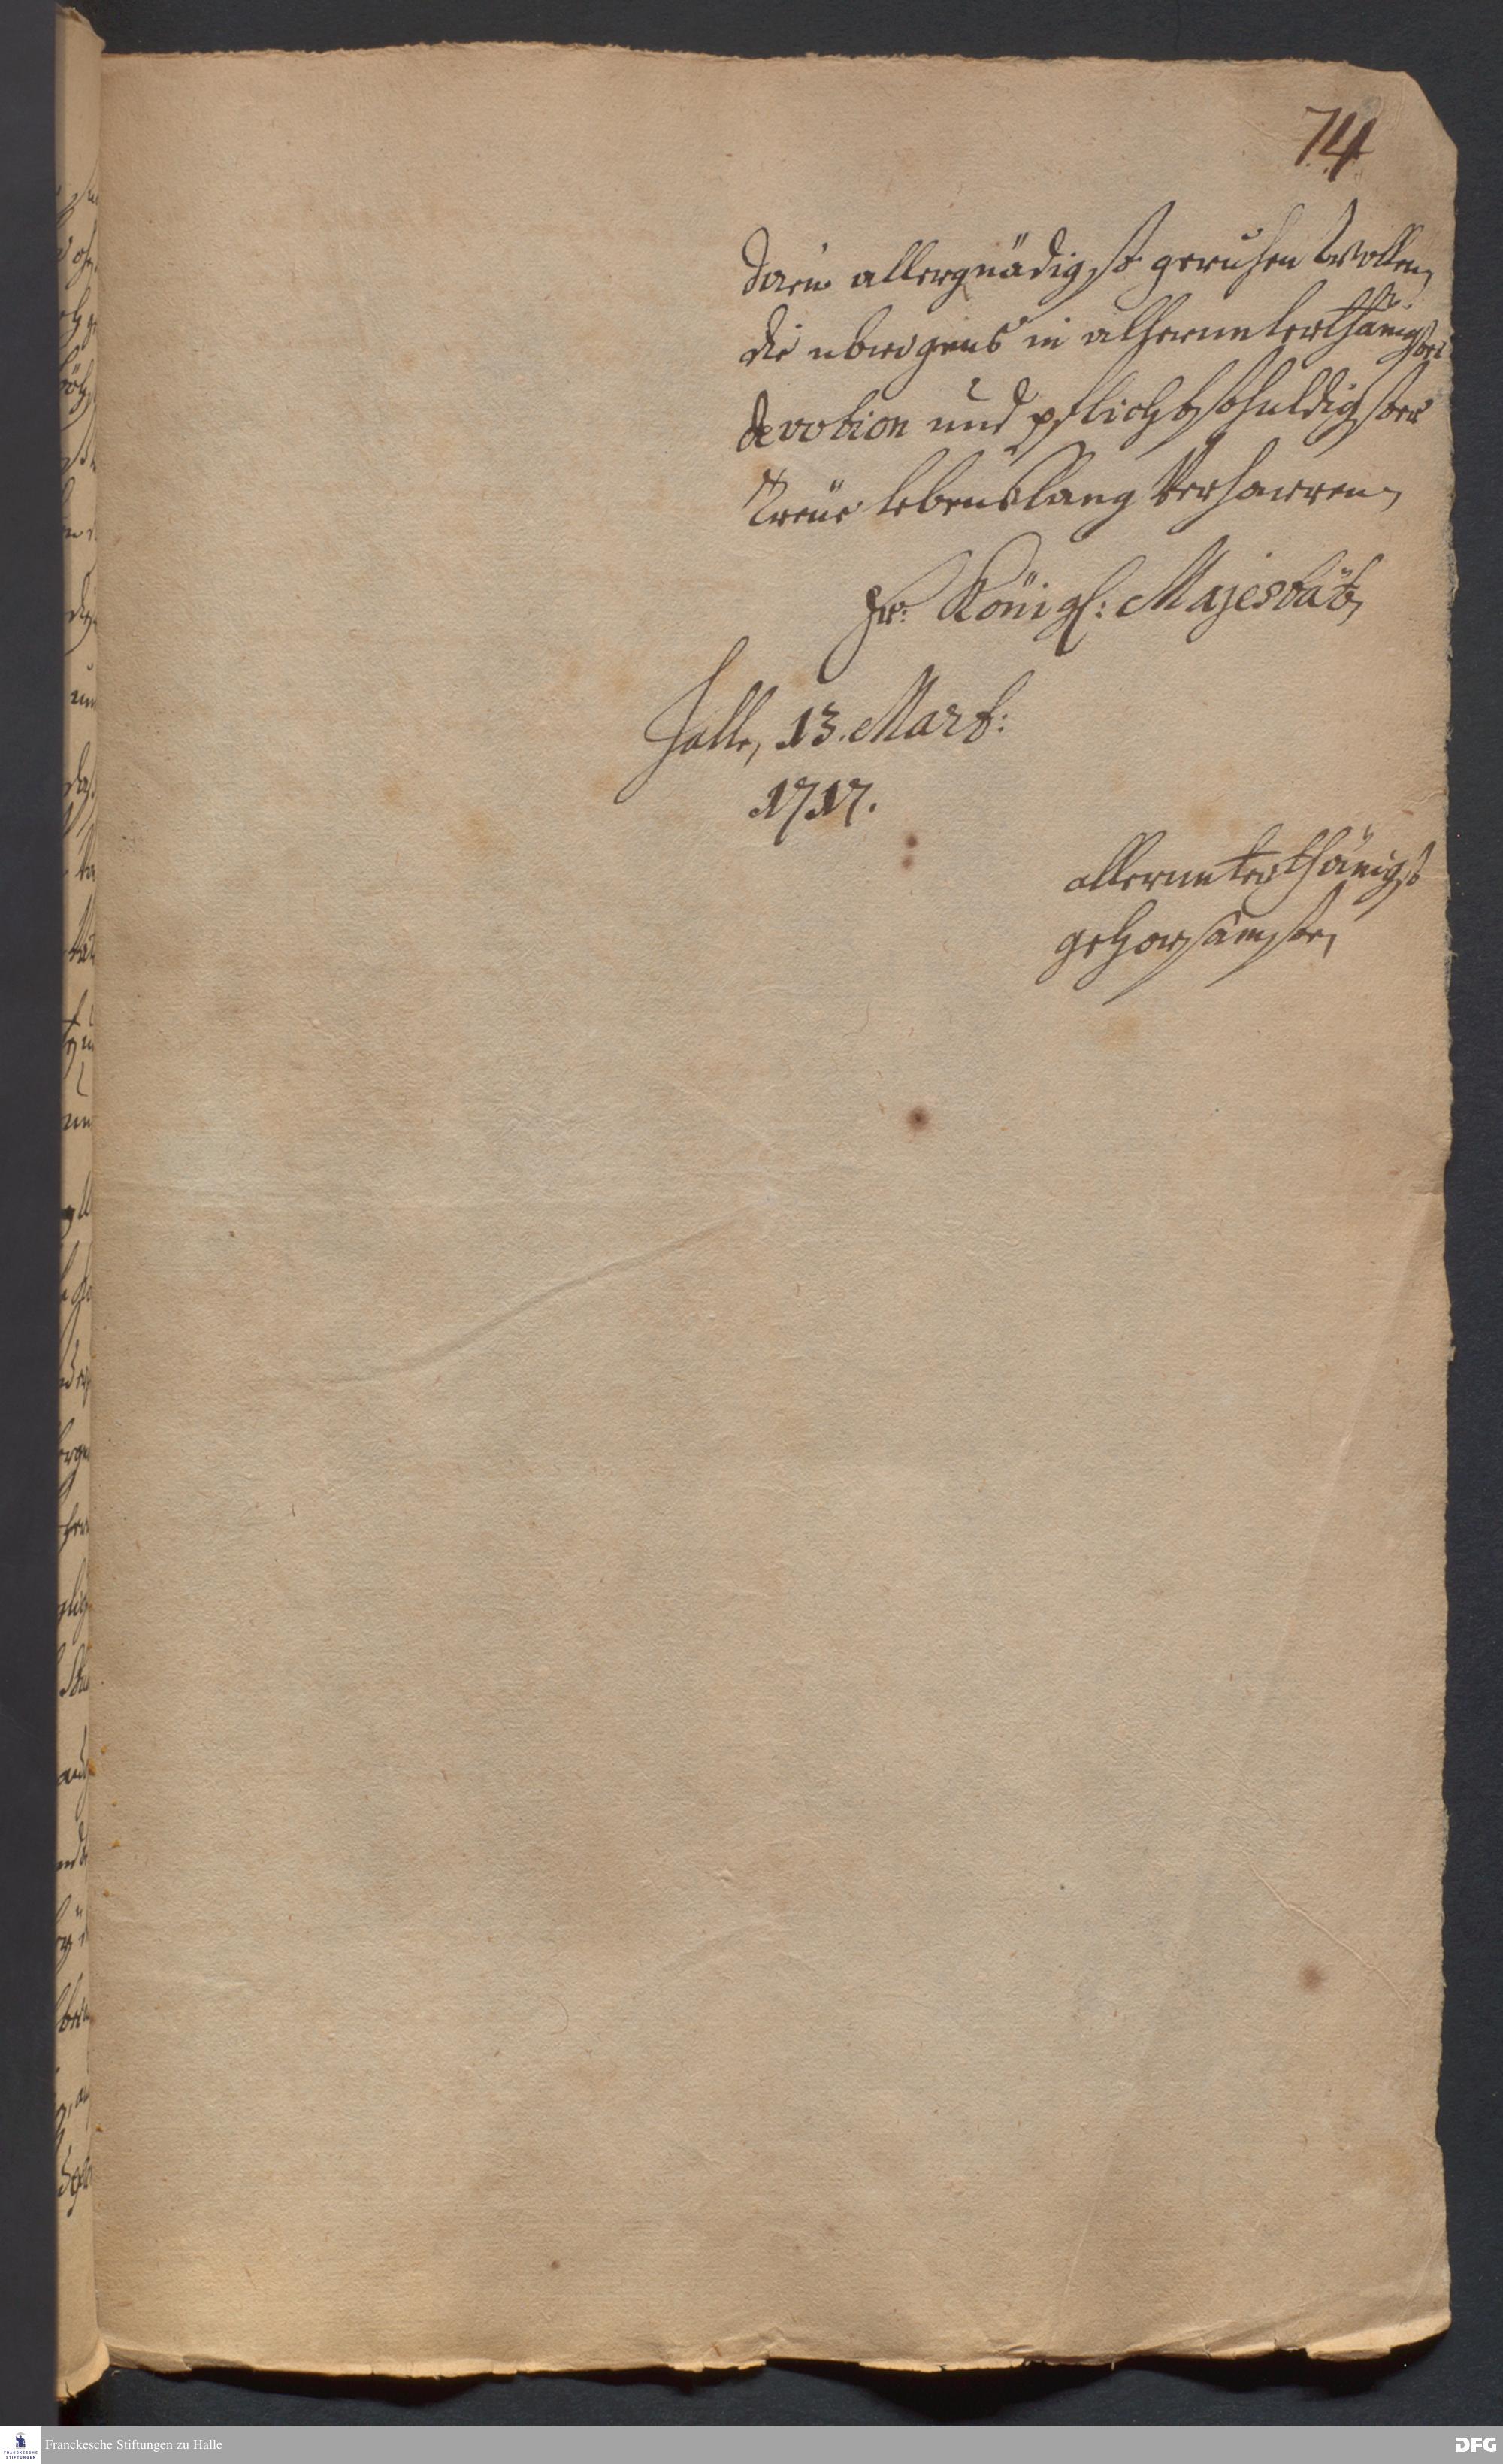 74
darin allergnädigst geruhen wollen,
die ubrigens in allerunterthänigster
devotion und pflichtschuldigster
Treüe lebenslang verharren,
Ew. Königl: Majestät,
Halle, 13. Mart:
1717.
allerunterthänigst
gehorsamste,
Franckesche Stiftungen zu Halle
DFG